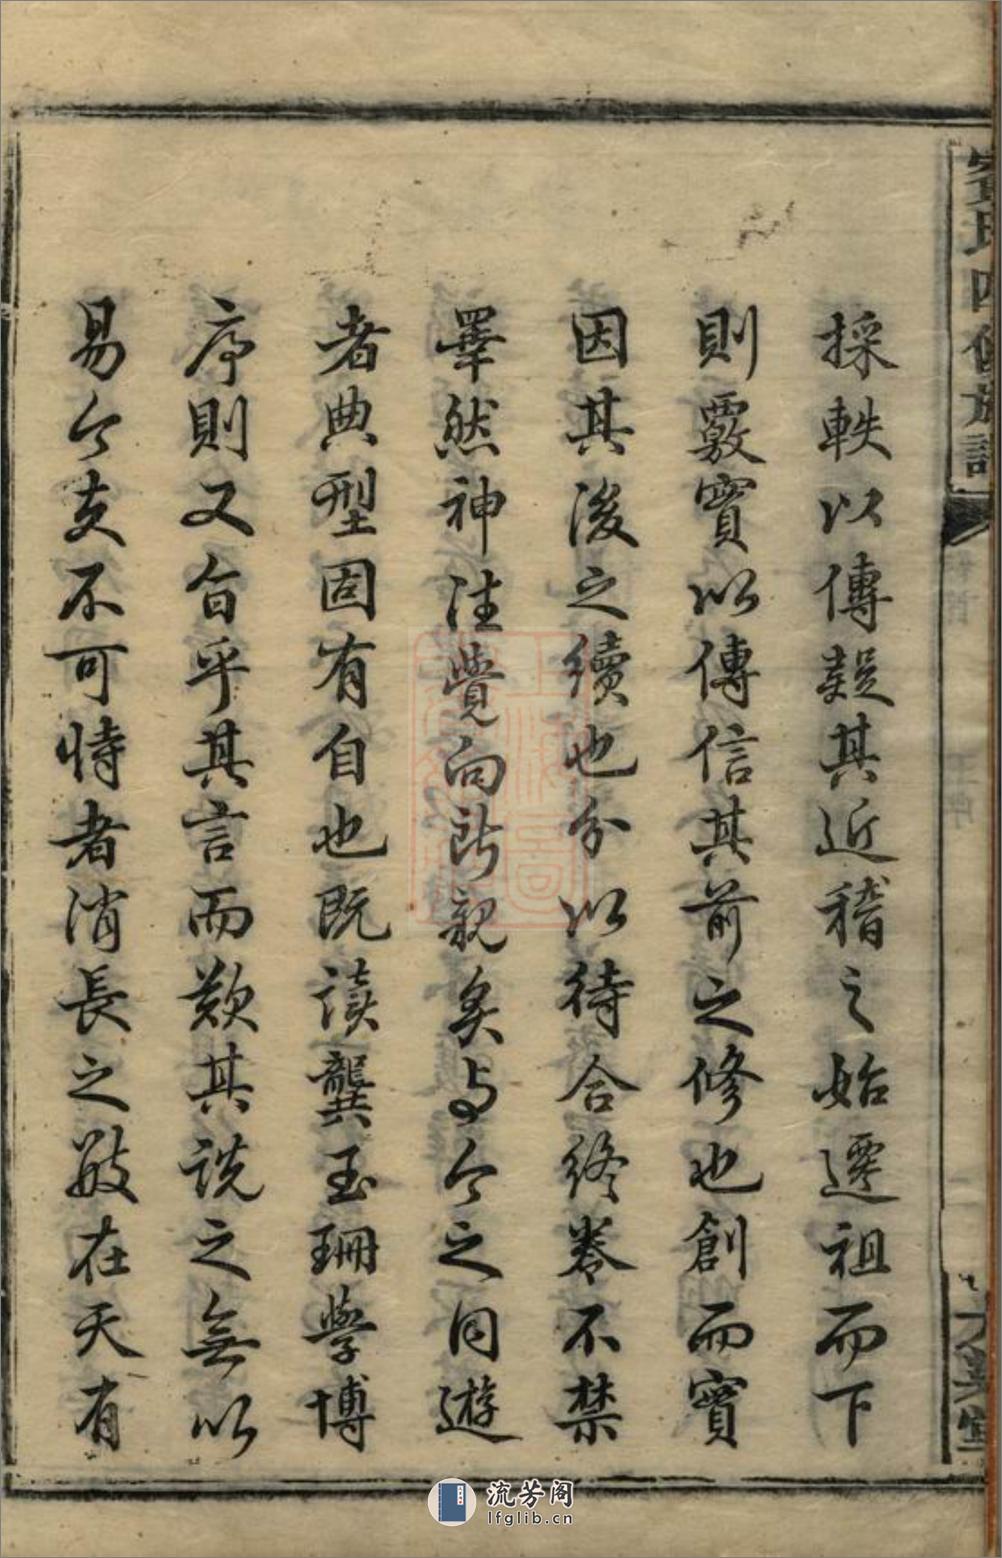 採軼以傳疑其近稽之始遷祖而下
則覈實以傳信其前之修也創而實
因其後之續也分以待合終卷不禁
睪然神往覺向所親炙与今之同遊
者典型固有自也既读龔玉珊學博
序則又旨乎其言而歎其説之無以
易今夫不可恃者消長之數在天有
氏四修族譜
流芳阁
lfglib.cn